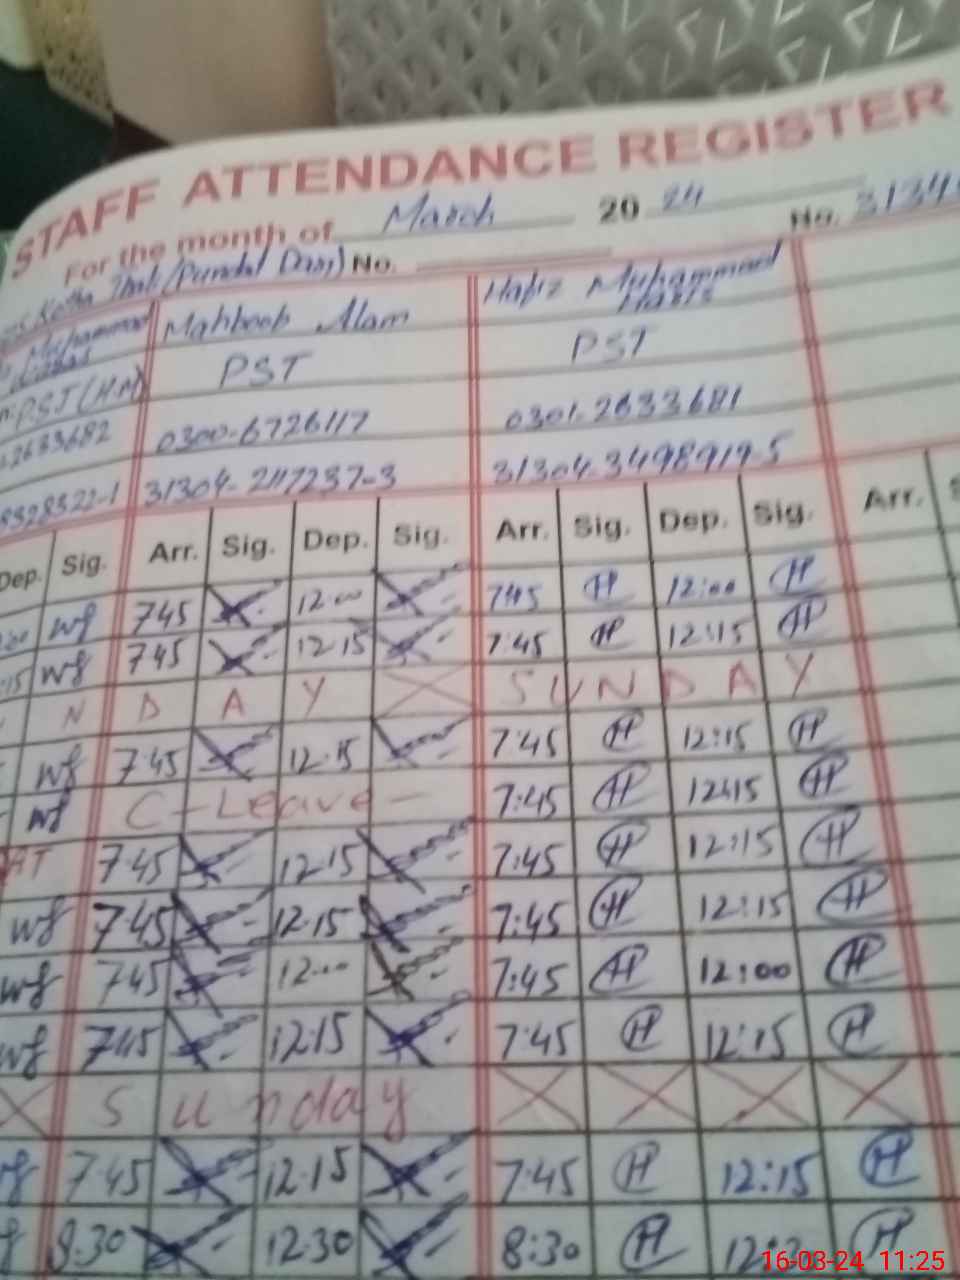 STAFF ATTENDANCE REGISTER
For the month of March 20 24 No. 3134
Dan) No.
Muhammad Mahboob Alam Hafiz Muhammad Haris
PST (H.M) PST PST
2633682 0300-6726117 0301-2633681
8328322-1 31304-2117237-3 31304-3498919-5
Dep. Sig. Arr. Sig. Dep. Sig. Arr. Sig. Dep. Sig. Arr. S
:00 wf 745 12:00 7:45 H 12:00 H
:15 wf 745 12:15 7:45 H 12:15 H
N D A Y SUNDAY
wf 7:45 12:15 7:45 H 12:15 H
wf C-Leave- 7:45 H 12:15 H
7:45 12:15 7:45 H 12:15 H
wf 7:45 12:15 7:45 H 12:15 H
wf 7:45 12:00 7:45 H 12:00 H
wf 7:45 12:15 7:45 H 12:15 H
Sunday
7:45 12:15 7:45 H 12:15 H
8:30 12:30 8:30 H 12:3 H
16-03-24 11:25